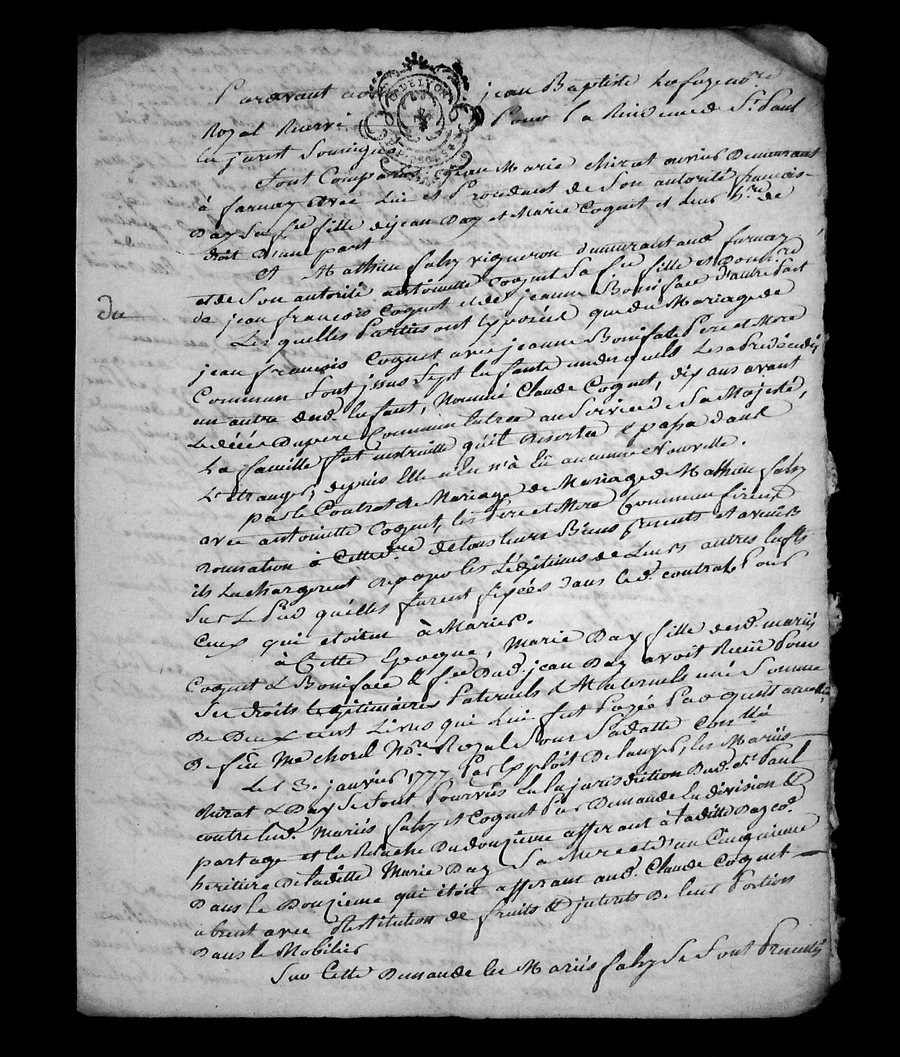 Pardevant jean Baptiste Lafayevre
Royal Reservé Pour La Residence de St. Paul
En jarest Soussigné
DE LYON
Sont Comparus jean Marie Mirat ouvrier Demeurant
à farnay avec Lui et Procedant de Son autorité françoise
Day Sa fe. fille de jean Day et Marie Coquet et Leur h.re de
droit D'une part
Et Mathieu faby vigneron demeurant aud. farnay
et de Son autorité antoinette Coquet Sa fe. fille et Donn.re
de jean françois Coquet et de jeanne Boniface D'autre Part
du
Lesquelles Parties ont Exposées que du Mariage de
jean françois Coquet avec jeanne Boniface Pere et Mere
Commun Sont jssus Sept Enfants
un autre dud. Enfant, Nommé Claude Coquet, dix ans avant
Le décés Du pere Commun Entra au Service de Sa Majesté,
La famille fut instruitte qu'il Deserta & passa dans
L'etranger, depuis Elle n'en n'a Eû aucune Nouvelle.
Par le Contrat de Mariage de Mathieu faby
avec antoinette Coquet, les Pere et Mere Commun firent
Donnation à Cette d.re de tous leurs Biens presents et avenirs
ils La chargerent de payer les Légitimes de Leurs autres Enfts
Sur Le Pied qu'elles furent fixées dans le d. contrat, Pour
Ceux qui etoient à Marier.
à Cette Epoque, Marie Day fille desd. mariés
Coquet & Boniface & fe. Dud. jean Day avoit Reçû Pour
Ses droits Legitimaires Paternels & Maternels une Somme
De Deux cent Livres qui Lui fut Payée Par quittance
De feu Me. chorel No.re Royal Sous Sa datte Conllé
Le 3. janvier 1777. Par Exploit De les Mariés
Mirat & Day Se Sont Pourvus En La jurisdiction Dud. St. Paul
contre Lesd. Mariés faby et Coquet Par Demande En division &
partage et En Relache Du douzieme afferant à Laditte Day co.
heritiere De Laditte Marie Day Sa Mere et d'un Cinquieme
Dans le Douzieme qui étoit afferant aud. Claude Coquet
absent avec Restitution de fruits & jnterets de leur Portion
Dans le Mobilier
Sur Cette Demande les Mariés faby Se Sont Presentés